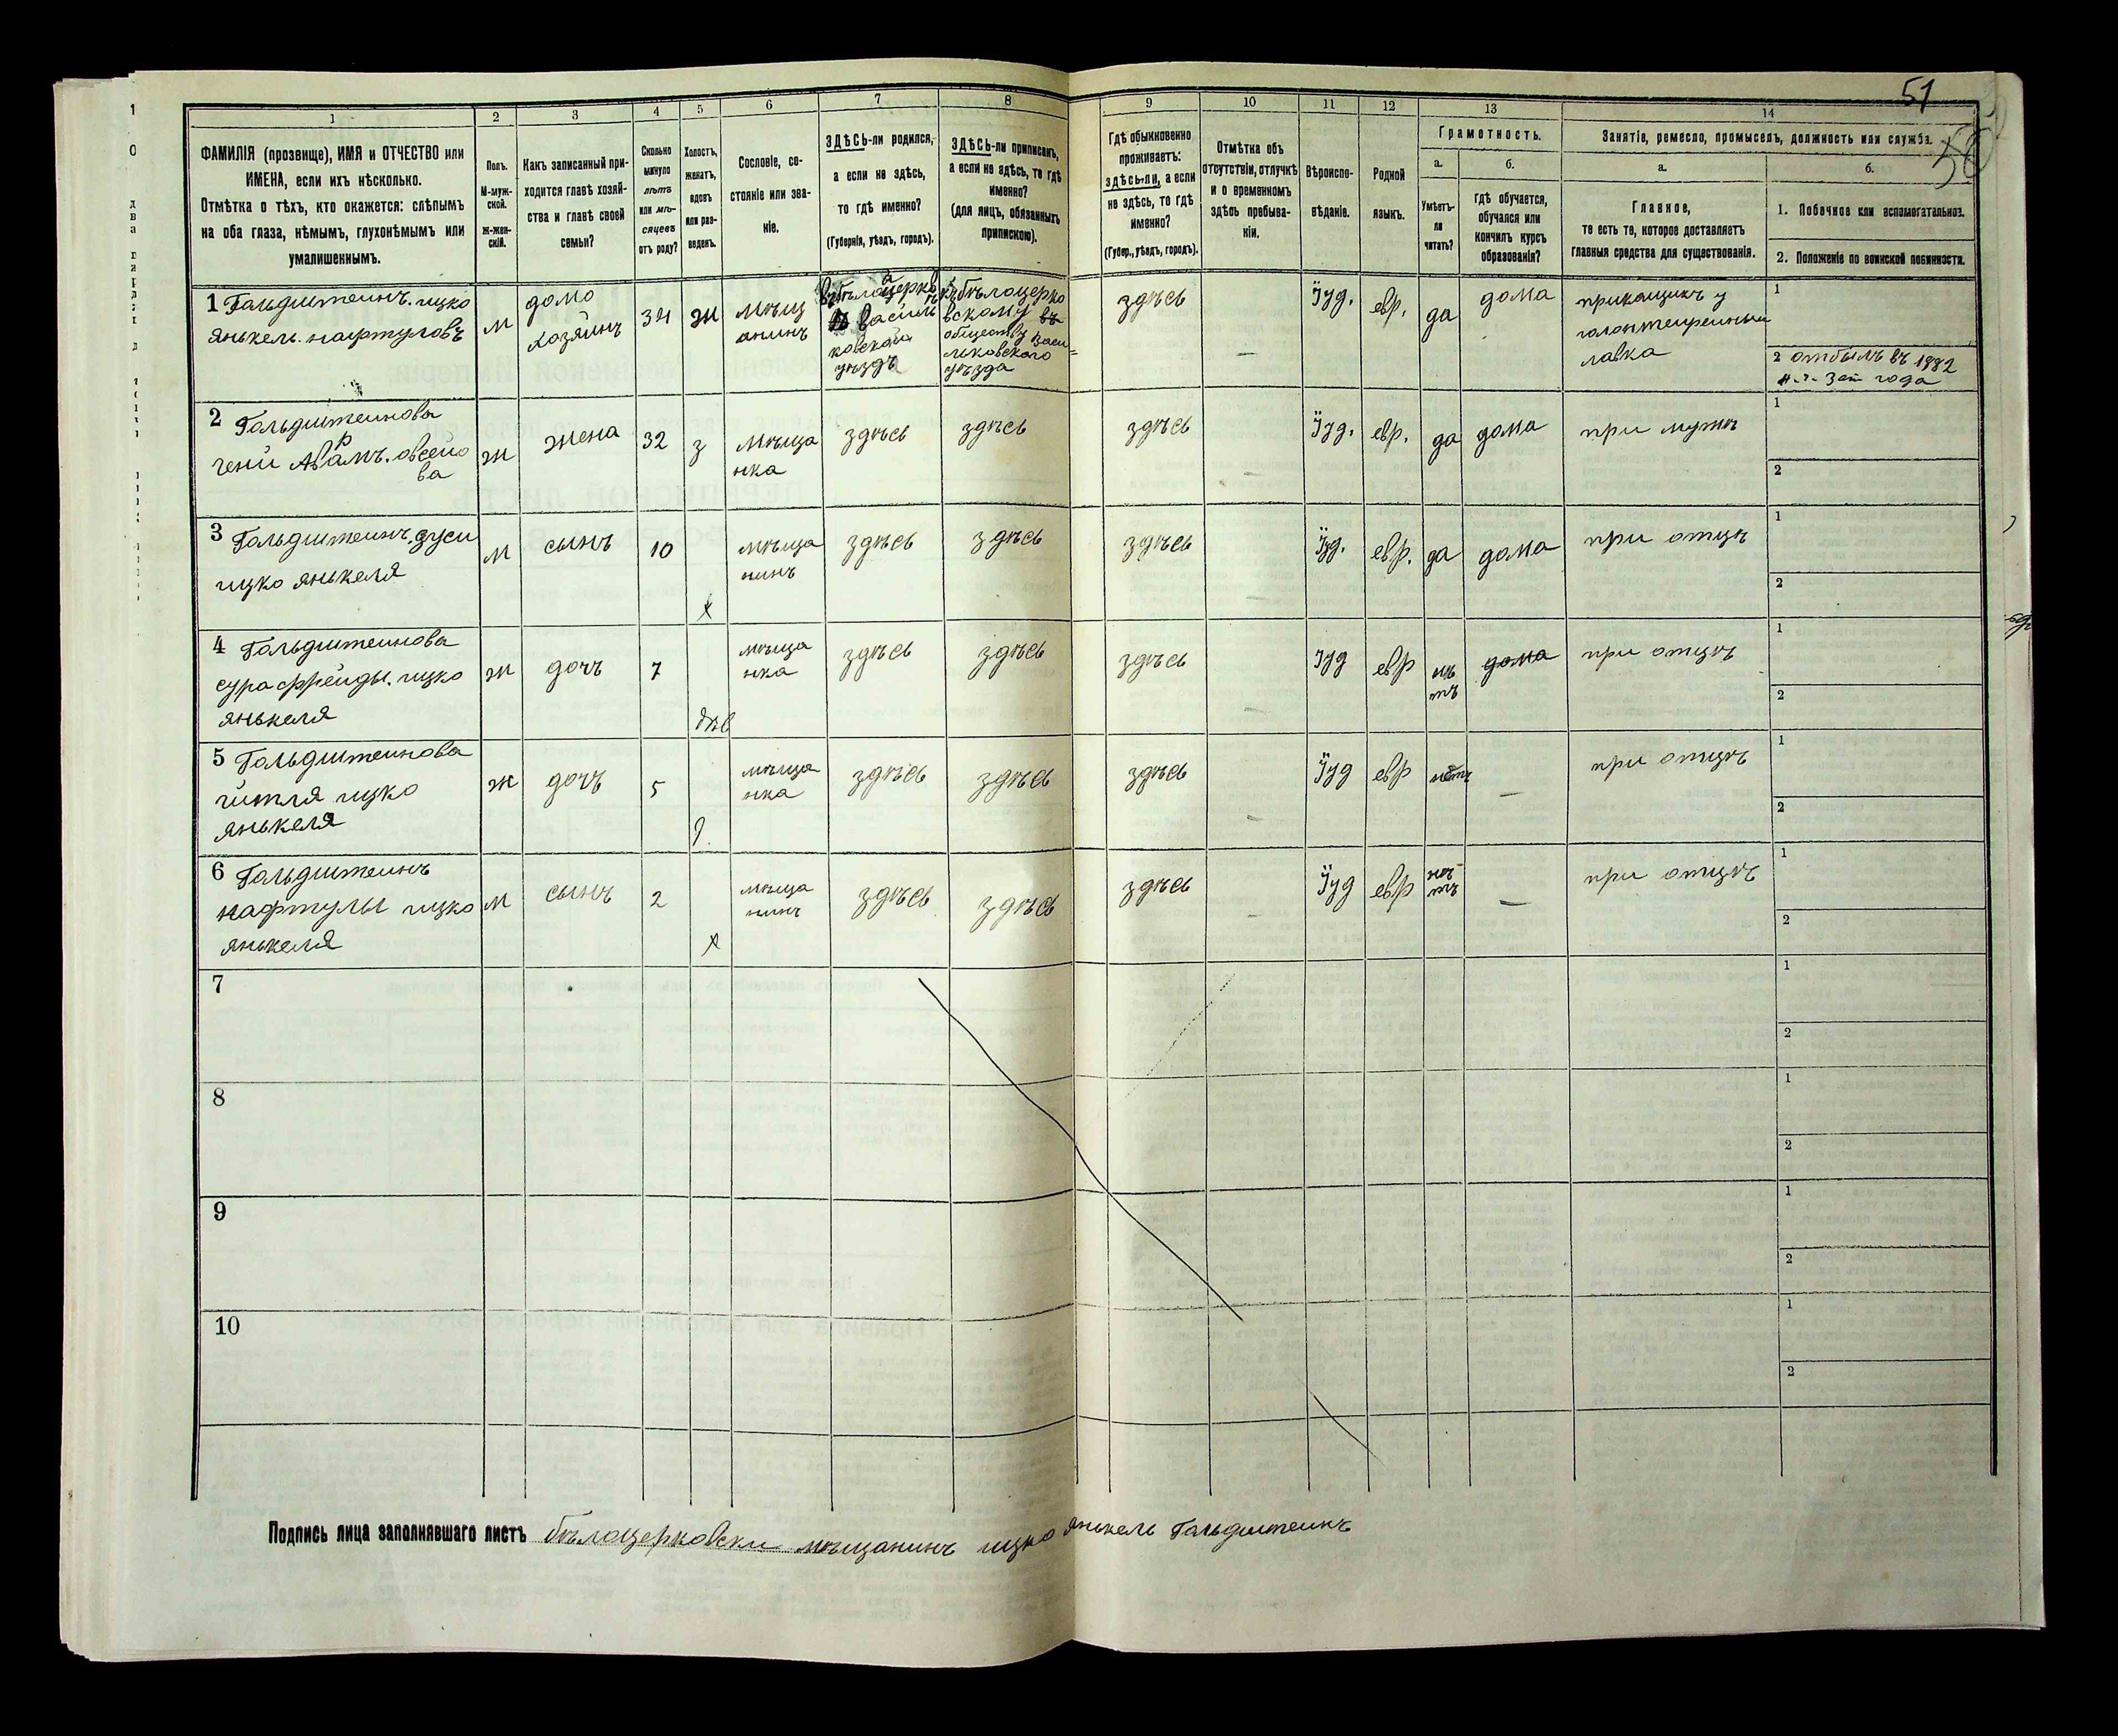 51
50
1
2
3
4
5
6
7
8
9
10
11
12
13
14
ФАМИЛІЯ (прозвище), ИМЯ и ОТЧЕСТВО или
ИМЕНА, если ихъ нѣсколько.
Отмѣтка о тѣхъ, кто окажется: слѣпымъ
на оба глаза, нѣмымъ, глухонѣмымъ или
умалишеннымъ.
Полъ.
М-муж-
ской.
Ж-жен-
скій.
Какъ записанный при-
ходится главѣ хозяй-
ства и главѣ своей
семьи?
Сколько
минуло
лѣтъ
или мѣ-
сяцевъ
отъ роду?
Холостъ,
женатъ,
вдовъ
или раз-
веденъ.
Сословіе, со-
стояніе или зва-
ніе.
ЗДѢСЬ-ли родился,
а если не здѣсь,
то гдѣ именно?
(Губернія, уѣздъ, городъ).
ЗДѢСЬ-ли приписанъ,
а если не здѣсь, то гдѣ
именно?
(для лицъ, обязанныхъ
припискою).
Гдѣ обыкновенно
проживаетъ:
здѣсь-ли, а если
не здѣсь, то гдѣ
именно?
(Губер., уѣздъ, городъ).
Отмѣтка объ
отсутствіи, отлучкѣ
и о временномъ
здѣсь пребыва-
ніи.
Вѣроиспо-
вѣданіе.
Родной
языкъ.
Грамотность.
а.
б.
Умѣетъ-
ли
читать?
Гдѣ обучается,
обучался или
кончилъ курсъ
образованія?
Занятіе, ремесло, промыселъ, должность или служба.
а.
б.
Главное,
то есть то, которое доставляетъ
главныя средства для существованія.
1. Побочное или вспомогательное.
2. Положеніе по воинской повинности.
1 Гольдштеинъ. ицко
янькель. нафтуловъ
м
домо
хозяинъ
34
ж
мѣщ
анинъ
въ бѣлоцерков
василь
ковскаи
уѣздъ
къ бѣлоцерко
вскому въ
обществу васи=
льковского
уѣзда
здѣсь
Іуд.
евр.
да
дома
прикащикъ у
лавка
1
2 отбылъ въ 1882
года
2 Гольдштеинова
овсейо
ва
ж
жена
32
з
мѣща
нка
здѣсь
здѣсь
здѣсь
Іуд.
евр.
да
дома
при мужѣ
1
2
3 Гольдштеинъ. дуси
ицко янькеля
м
сынъ
10
х
мѣща
нинъ
здѣсь
здѣсь
здѣсь
Іуд.
евр.
да
дома
при отцѣ
1
2
4 Гольдштеинова
сура фрейды. ицко
янькеля
ж
дочъ
7
дѣв
мѣща
нка
здѣсь
здѣсь
здѣсь
Іуд
евр
нѣ
тъ
дома
при отцѣ
1
2
5 Гольдштеинова
гитля ицко
янькеля
ж
дочъ
5
д.
мѣща
нка
здѣсь
здѣсь
здѣсь
Іуд
евр
нѣтъ
при отцѣ
1
2
6 Гольдштеинъ
нафтулы ицко
янькеля
м
сынъ
2
х
мѣща
нинъ
здѣсь
здѣсь
здѣсь
Іуд
евр
нѣ
тъ
при отцѣ
1
2
7
1
2
8
1
2
9
1
2
10
1
2
Подпись лица заполнявшаго листъ бѣлоцерковски мѣщанинъ ицко янькель Гольдштеинъ